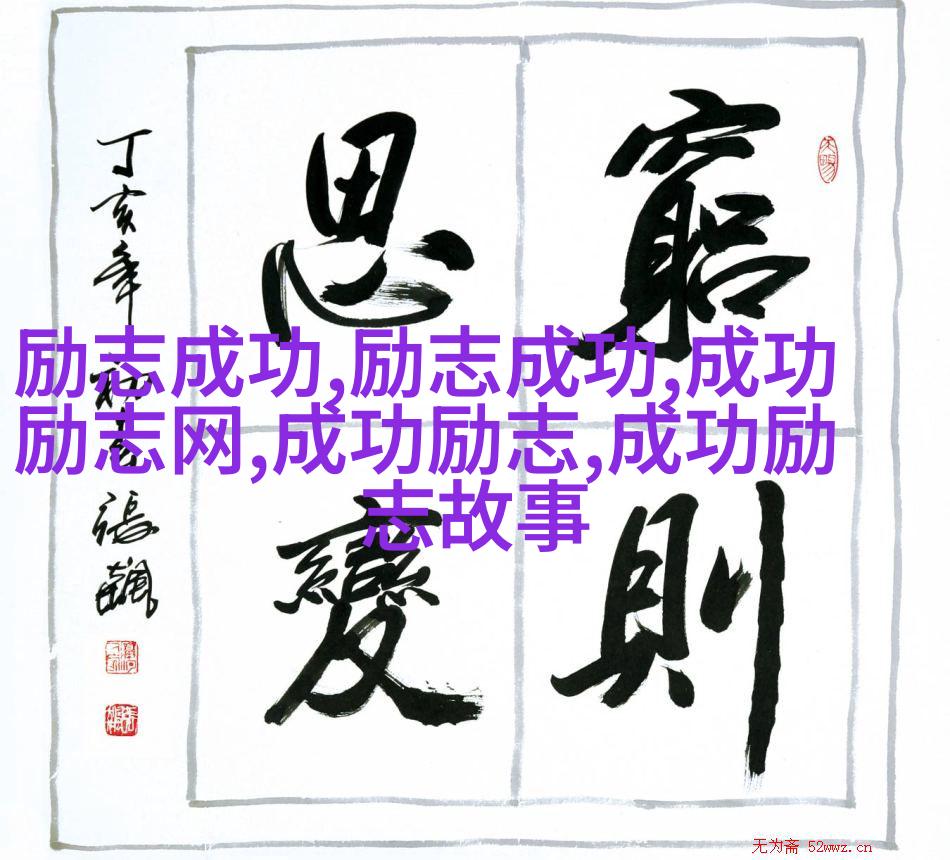 窮則
思變
丁亥年
張飆
励志成功,励志成功,成功
励志网,成功励志,成功励
志故事
无为斋 52wwz.cn